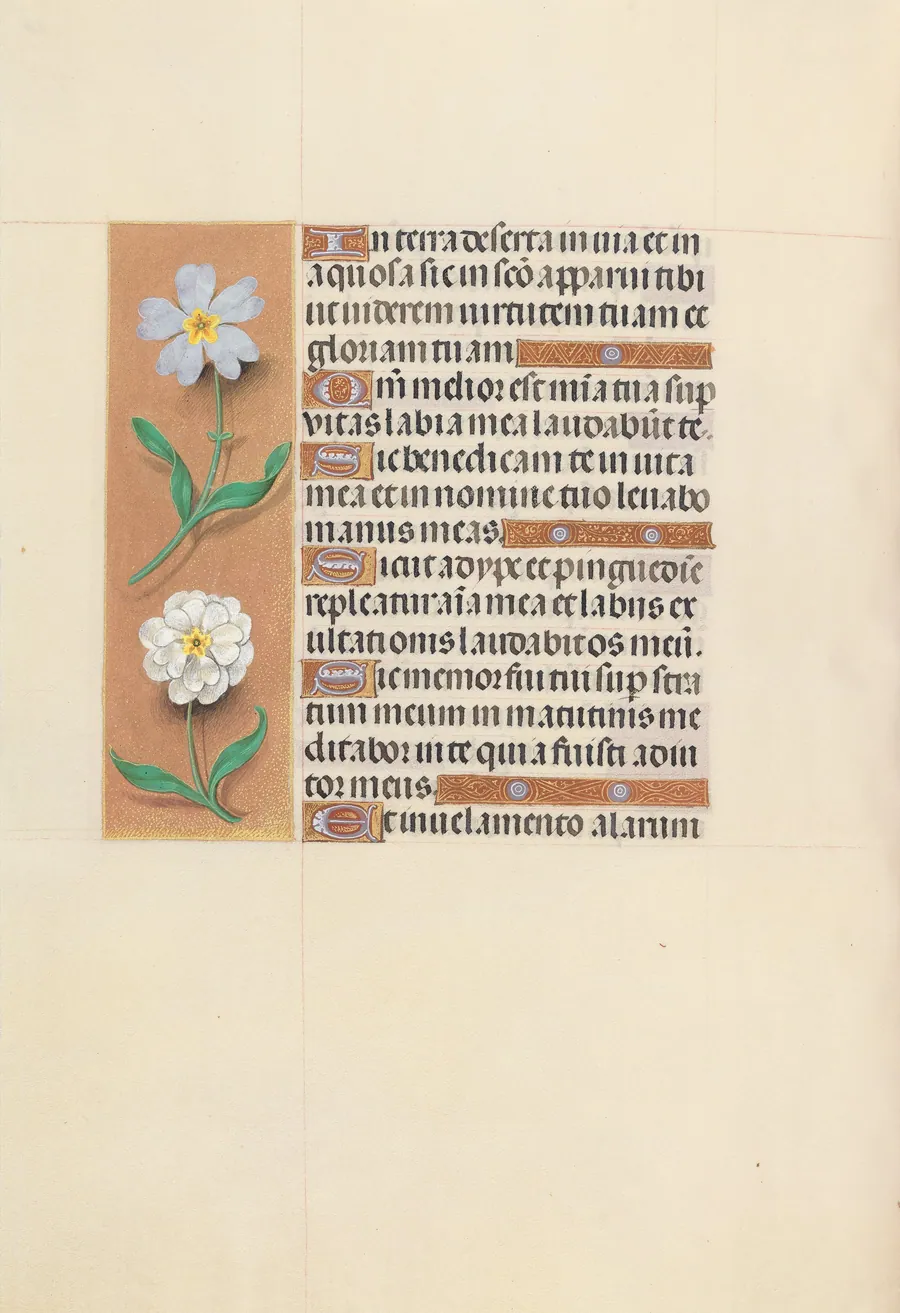 In terra deserta in uia et in
aquosa sic in scō apparui tibi
ut uiderem uirtutem tuam et
gloriam tuam
Qm̄ melior est mīa tua sup
vitas labia mea laudabūt te.
Sic benedicam te in uita
mea et in nomine tuo leuabo
manus meas.
Sicut adype et pinguedīe
repleatur aīa mea et labiis ex
ultationis laudabit os meū.
Sic memor fui tui sup stra
tum meum in matutinis me
ditabor in te quia fuisti adiu
tor meus.
Et in uelamento alarum